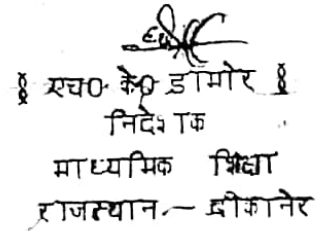 एच० के० डामोर
निदेशक
माध्यमिक शिक्षा
राजस्थान - बीकानेर